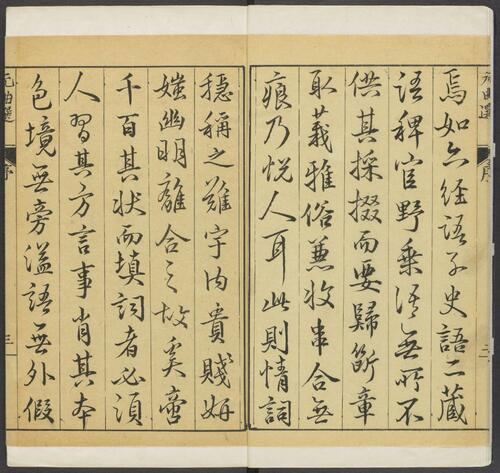 元曲選 序 二
焉如六經語子史語二藏
語稗官野乘語無所不
供其採掇而要歸斷章
取義雅俗兼收串合無
痕乃悅人耳此則情詞
穩稱之難宇内貴賤妍
媸幽明離合之故奚啻
千百其狀而填詞者必須
人習其方言事肖其本
色境無旁溢語無外假
元曲選 序 三